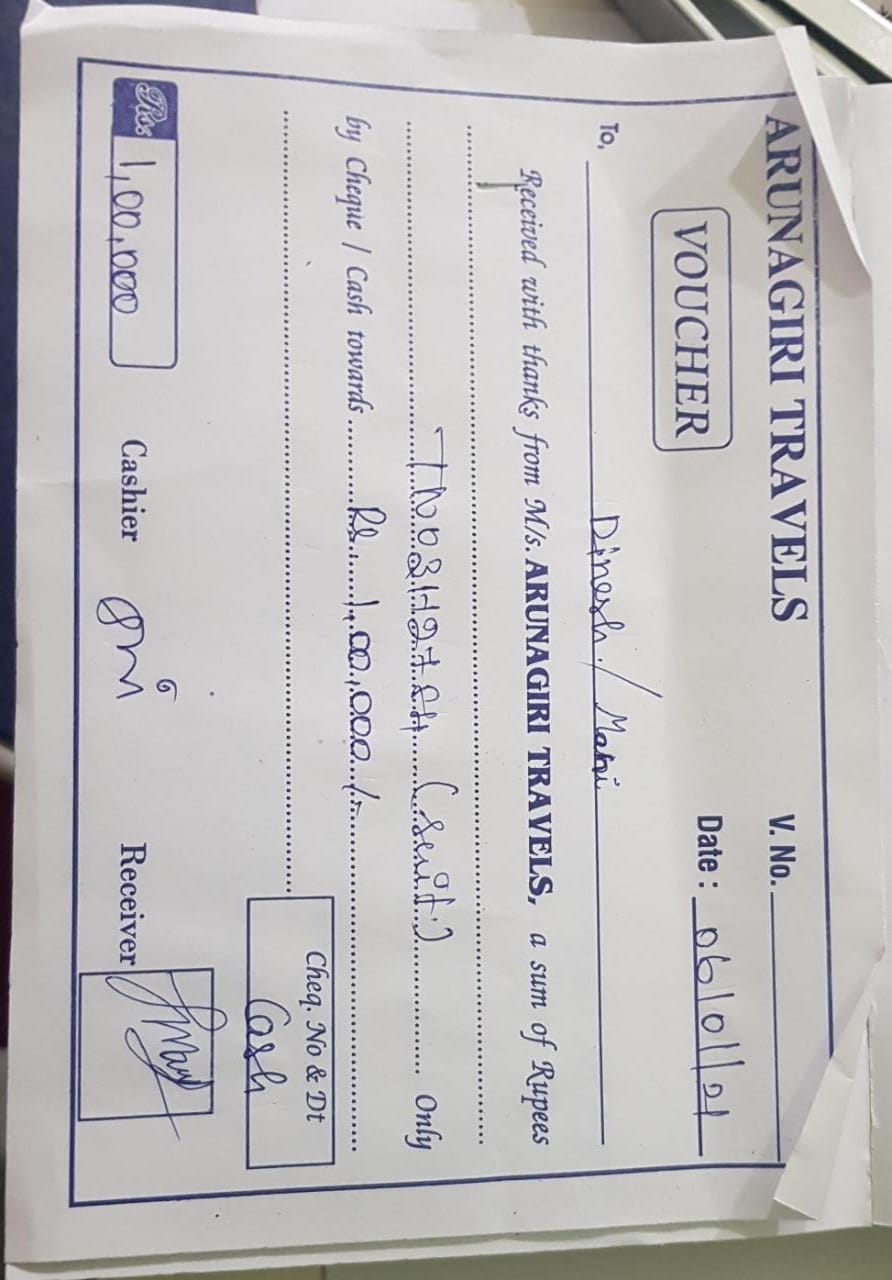 ARUNAGIRI TRAVELS V. No.
VOUCHER Date : 06/01/21
To, Dinesh / Mani
Received with thanks from M/s. ARUNAGIRI TRAVELS, a sum of Rupees
Only
by Cheque / Cash towards Rs. 1,00,000/-
Cheq. No & Dt
Cash
Rs. 1,00,000 Cashier Receiver